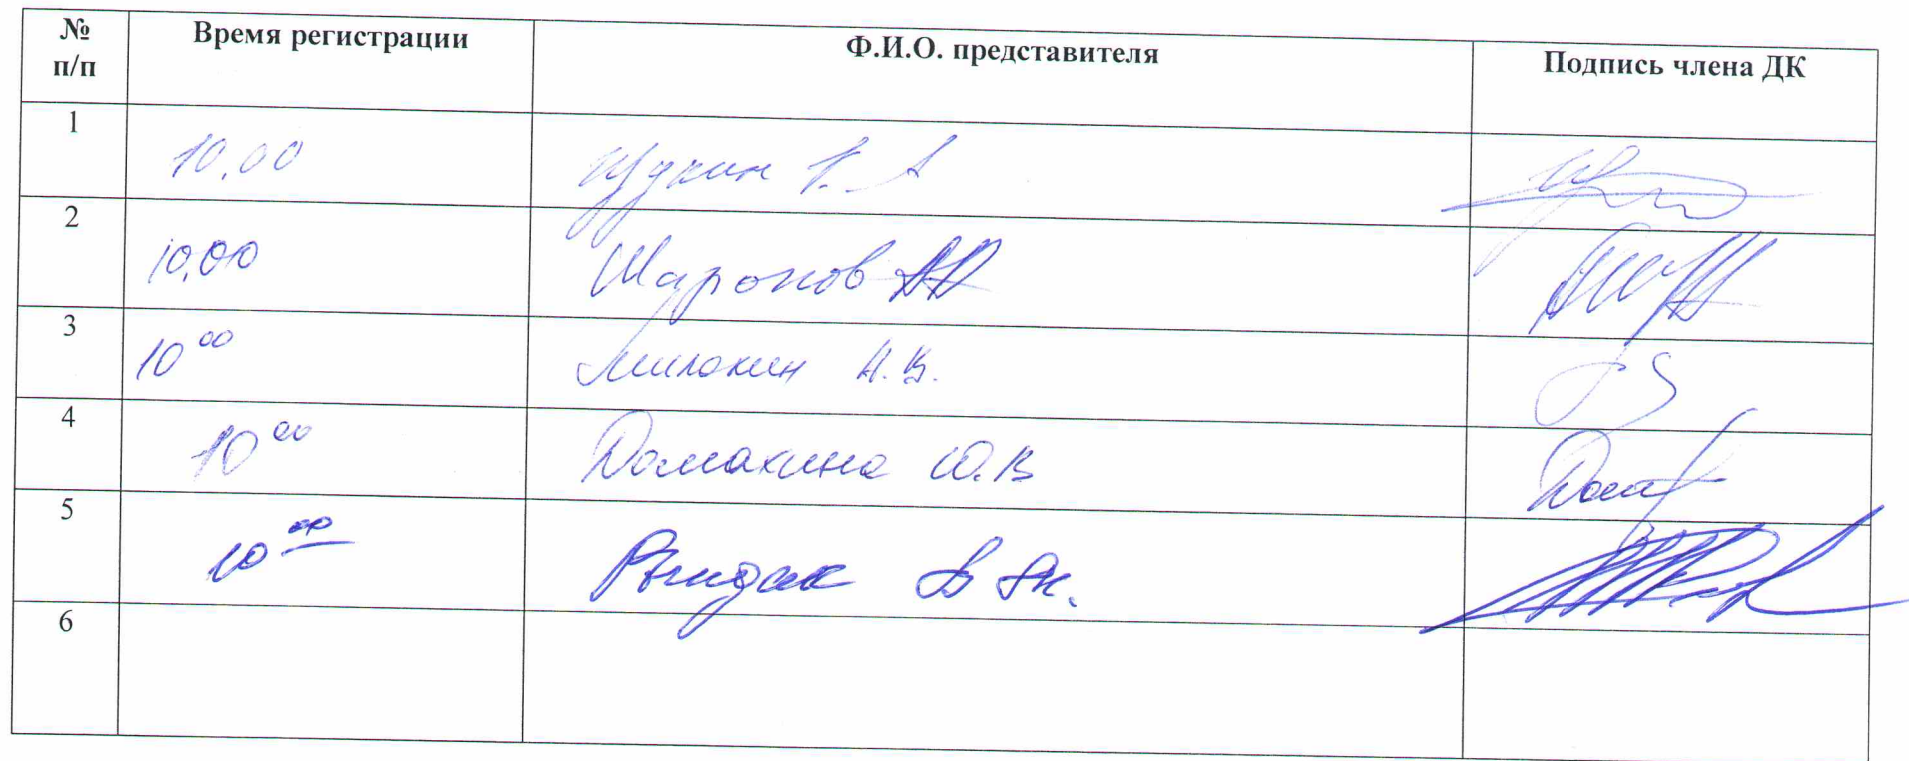 № п/п Время регистрации Ф.И.О. представителя Подпись члена ДК
1 10.00
2 10.00 Шаронов
3 10 00 Милокин А.В.
4 10 00 Домакина Ю.В
5 10 00 Рындак В
6